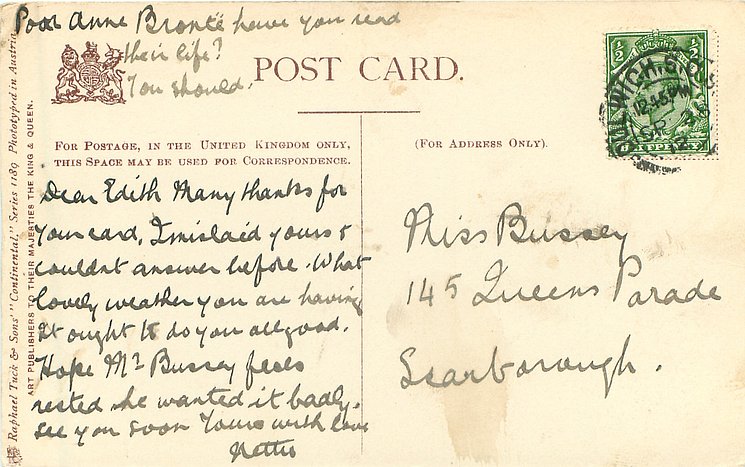 Poor Anne Brontë have you read
their life?
You should.
POST CARD.
FOR POSTAGE, IN THE UNITED KINGDOM ONLY,
THIS SPACE MAY BE USED FOR CORRESPONDENCE.
(FOR ADDRESS ONLY).
Dear Edith Many thanks for
your card, I mislaid yours &
couldnt answer before. What
lovely weather you are having
It ought to do you all good.
Hope Mr Bussey feels
rested he wanted it badly.
See you soon Yours with love
Miss Bussey
145 Queens Parade
Scarborough.
Raphael Tuck & Sons' "Continental." Series 1189 Phototyped in Austria
ART PUBLISHERS TO THEIR MAJESTIES THE KING & QUEEN.
½ ½
12.45PM
12